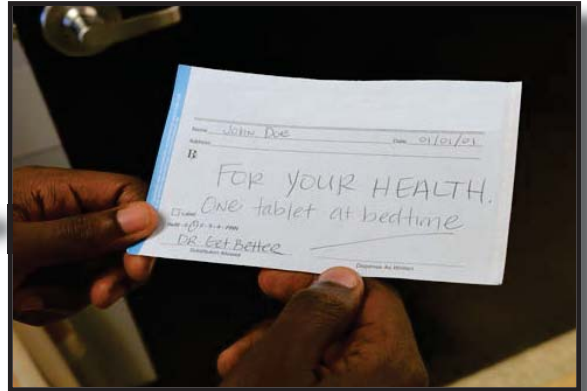 Name John Doe Date 01/01/01
Address
℞
FOR YOUR HEALTH.
One tablet at bedtime
Label
DR. Get Better
Substitution Allowed Dispense As Written